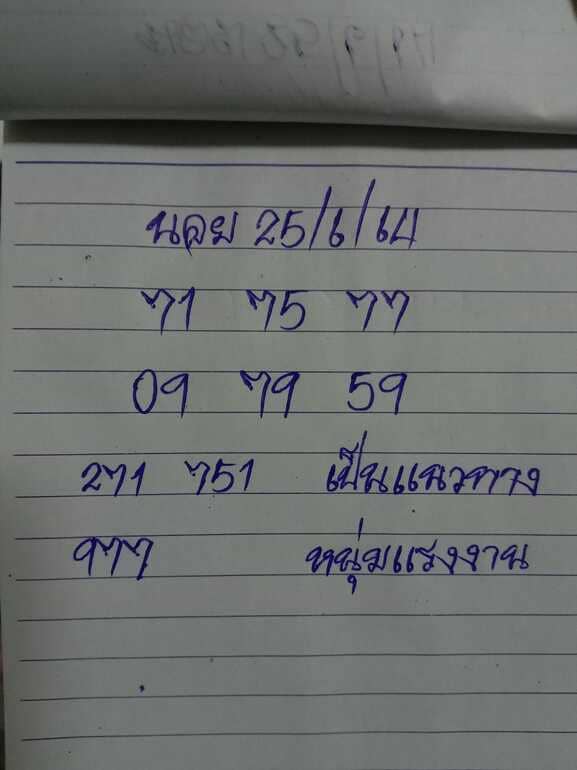 นอย 25/6/64
71 75 77
09 79 59
271 751 เป็นแนวทาง
977 หนุ่มแรงงาน